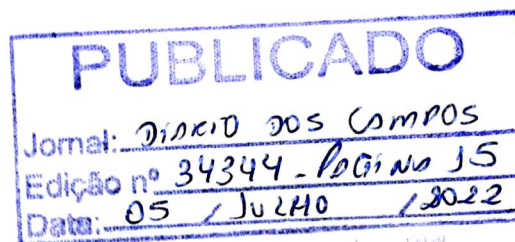 PUBLICADO
Jornal: DIARIO DOS CAMPOS
Edição nº 34344 - PAGINA 15
Data: 05 / JULHO / 2022